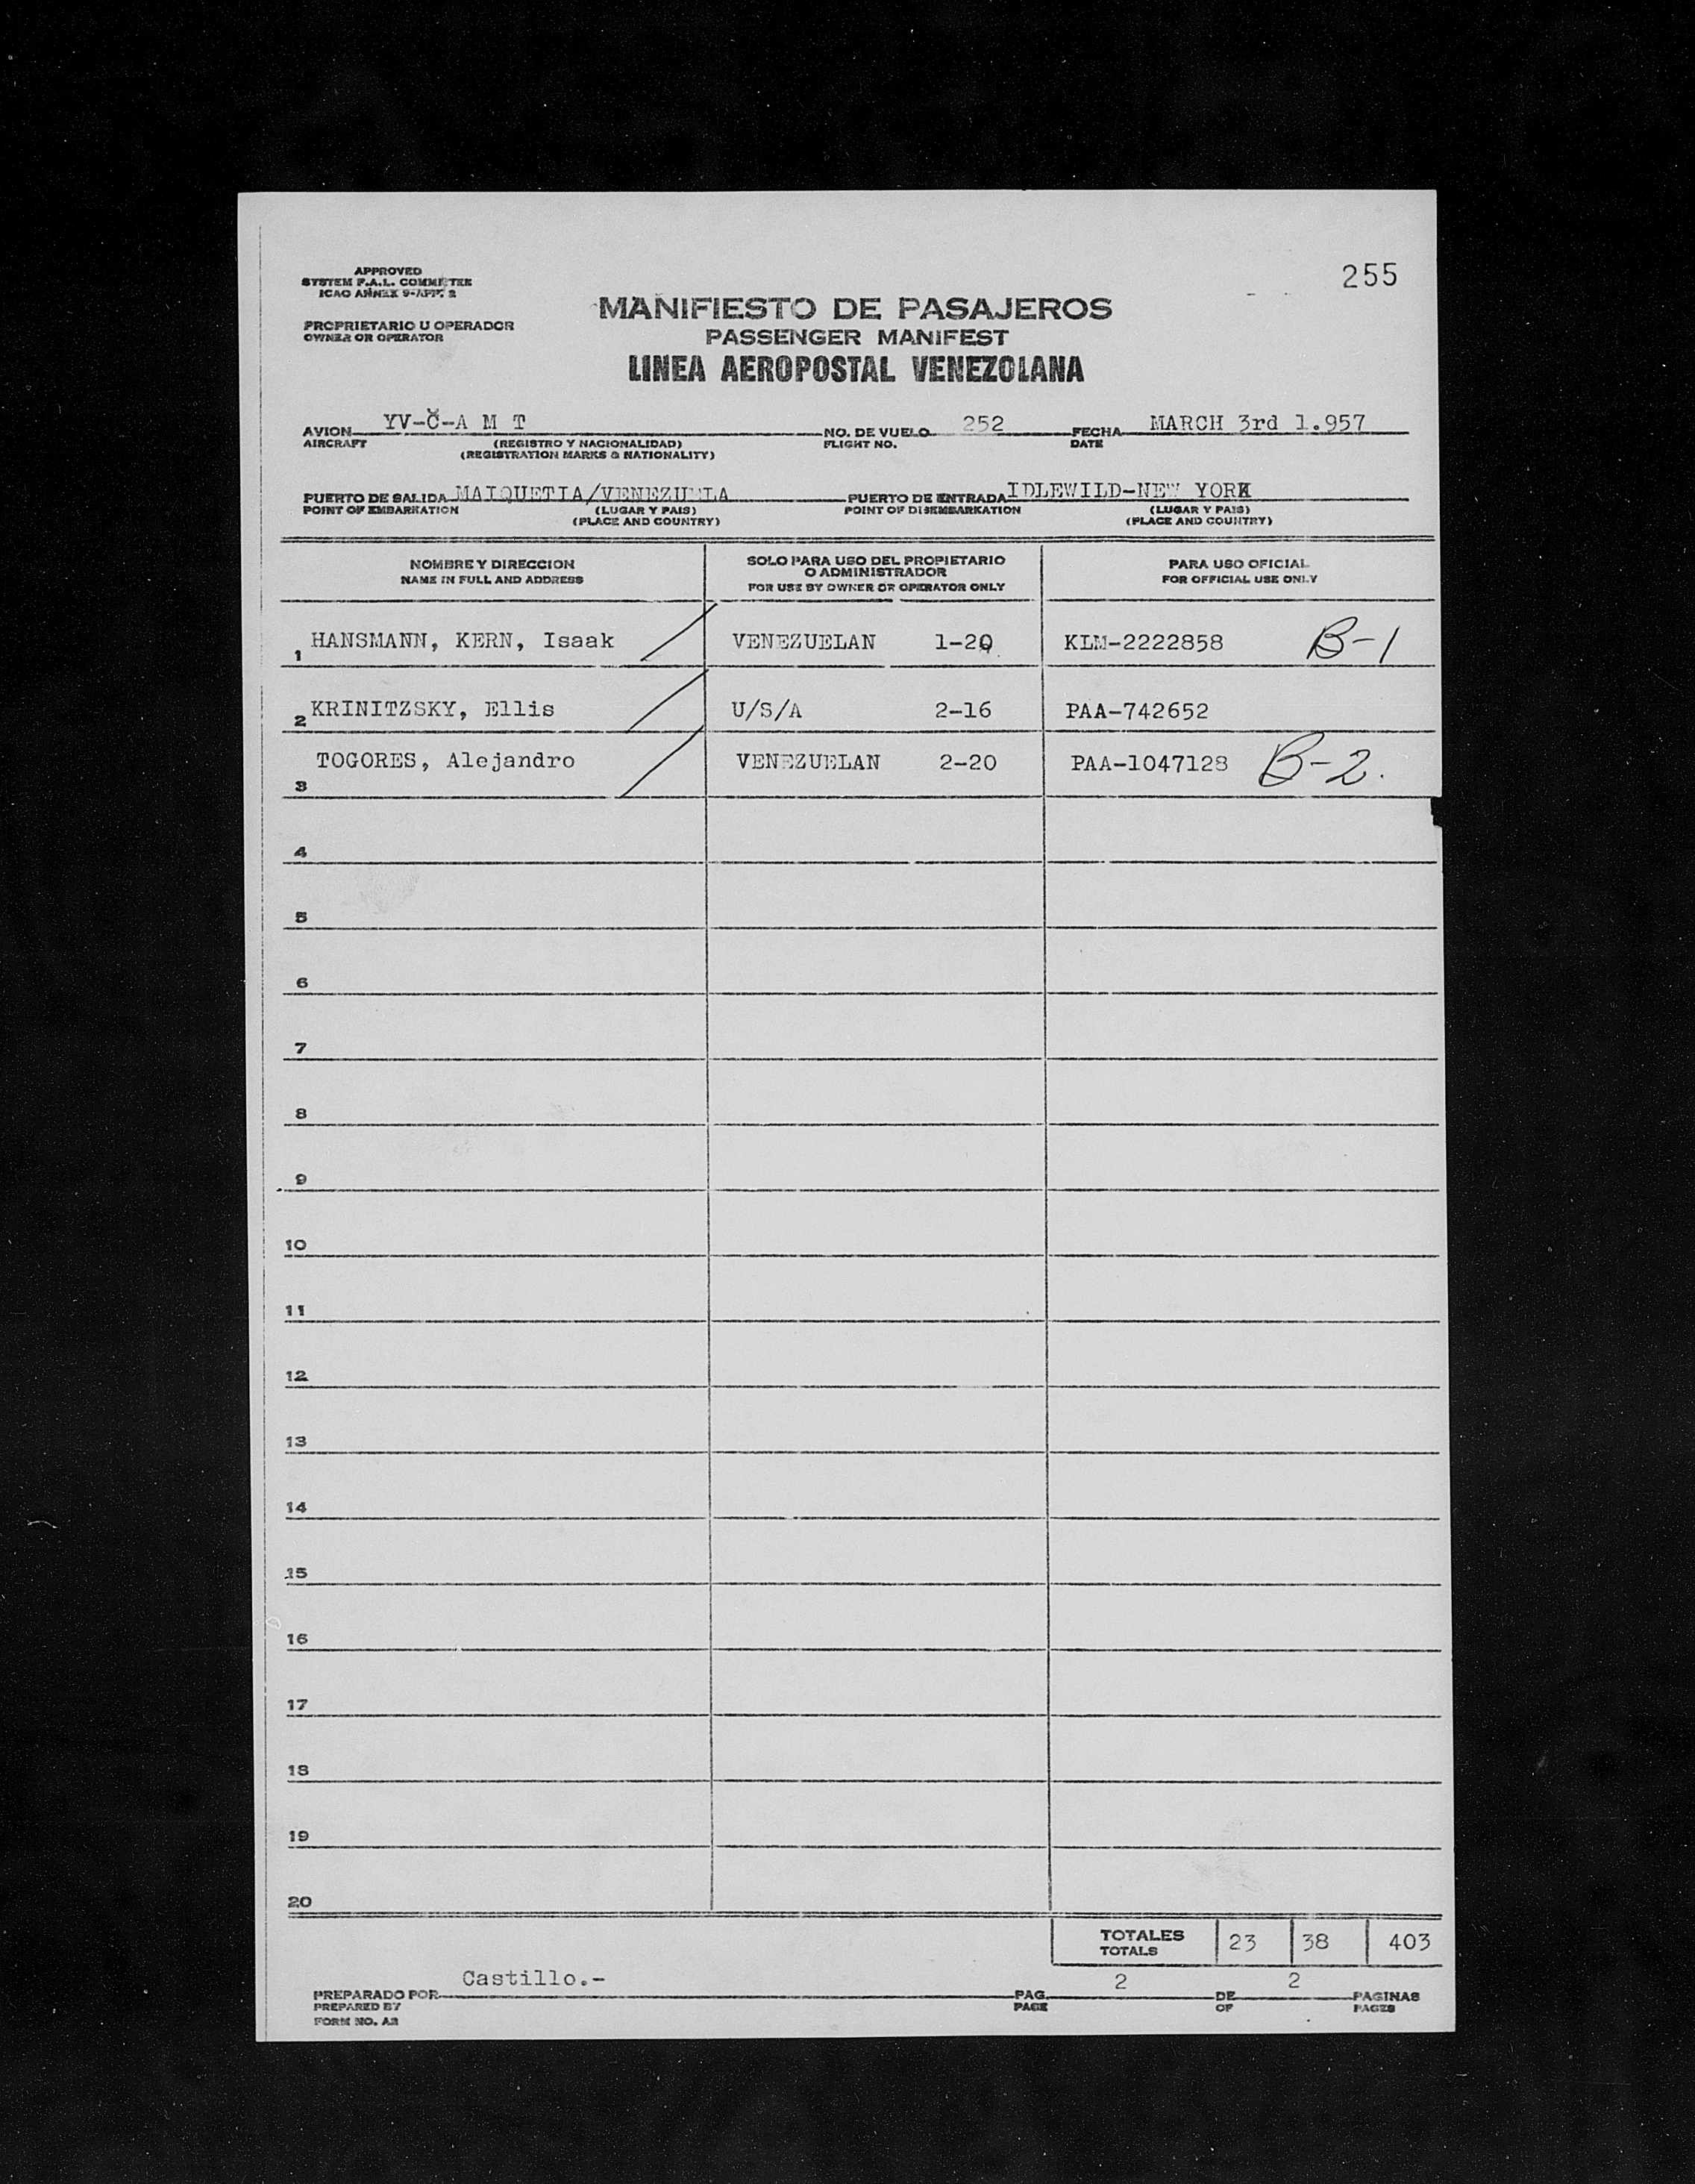 255
APPROVED
SYSTEM F.A.L. COMMITTEE
ICAO ANNEX 9-APP. 2
PROPRIETARIO U OPERADOR
OWNER OR OPERATOR
MANIFIESTO DE PASAJEROS
PASSENGER MANIFEST
LINEA AEROPOSTAL VENEZOLANA
AVION YV-C-A M T NO. DE VUELO 252 FECHA MARCH 3rd 1.957
AIRCRAFT (REGISTRO Y NACIONALIDAD) FLIGHT NO. DATE
(REGISTRATION MARKS & NATIONALITY)
PUERTO DE SALIDA MAIQUETIA/VENEZUELA PUERTO DE ENTRADA IDLEWILD-NEW YORK
POINT OF EMBARKATION (LUGAR Y PAIS) POINT OF DISEMBARKATION (LUGAR Y PAIS)
(PLACE AND COUNTRY) (PLACE AND COUNTRY)
NOMBRE Y DIRECCION SOLO PARA USO DEL PROPIETARIO PARA USO OFICIAL
O ADMINISTRADOR
NAME IN FULL AND ADDRESS FOR USE BY OWNER OR OPERATOR ONLY FOR OFFICIAL USE ONLY
1 HANSMANN, KERN, Isaak VENEZUELAN 1-20 KLM-2222858 B-1
2 KRINITZSKY, Ellis U/S/A 2-16 PAA-742652
3 TOGORES, Alejandro VENEZUELAN 2-20 PAA-1047128 B-2.
4
5
6
7
8
9
10
11
12
13
14
15
16
17
18
19
20
TOTALES 23 38 403
TOTALS
PREPARADO POR Castillo.- PAG. 2 DE 2 PAGINAS
PREPARED BY PAGE OF PAGES
FORM NO. A2